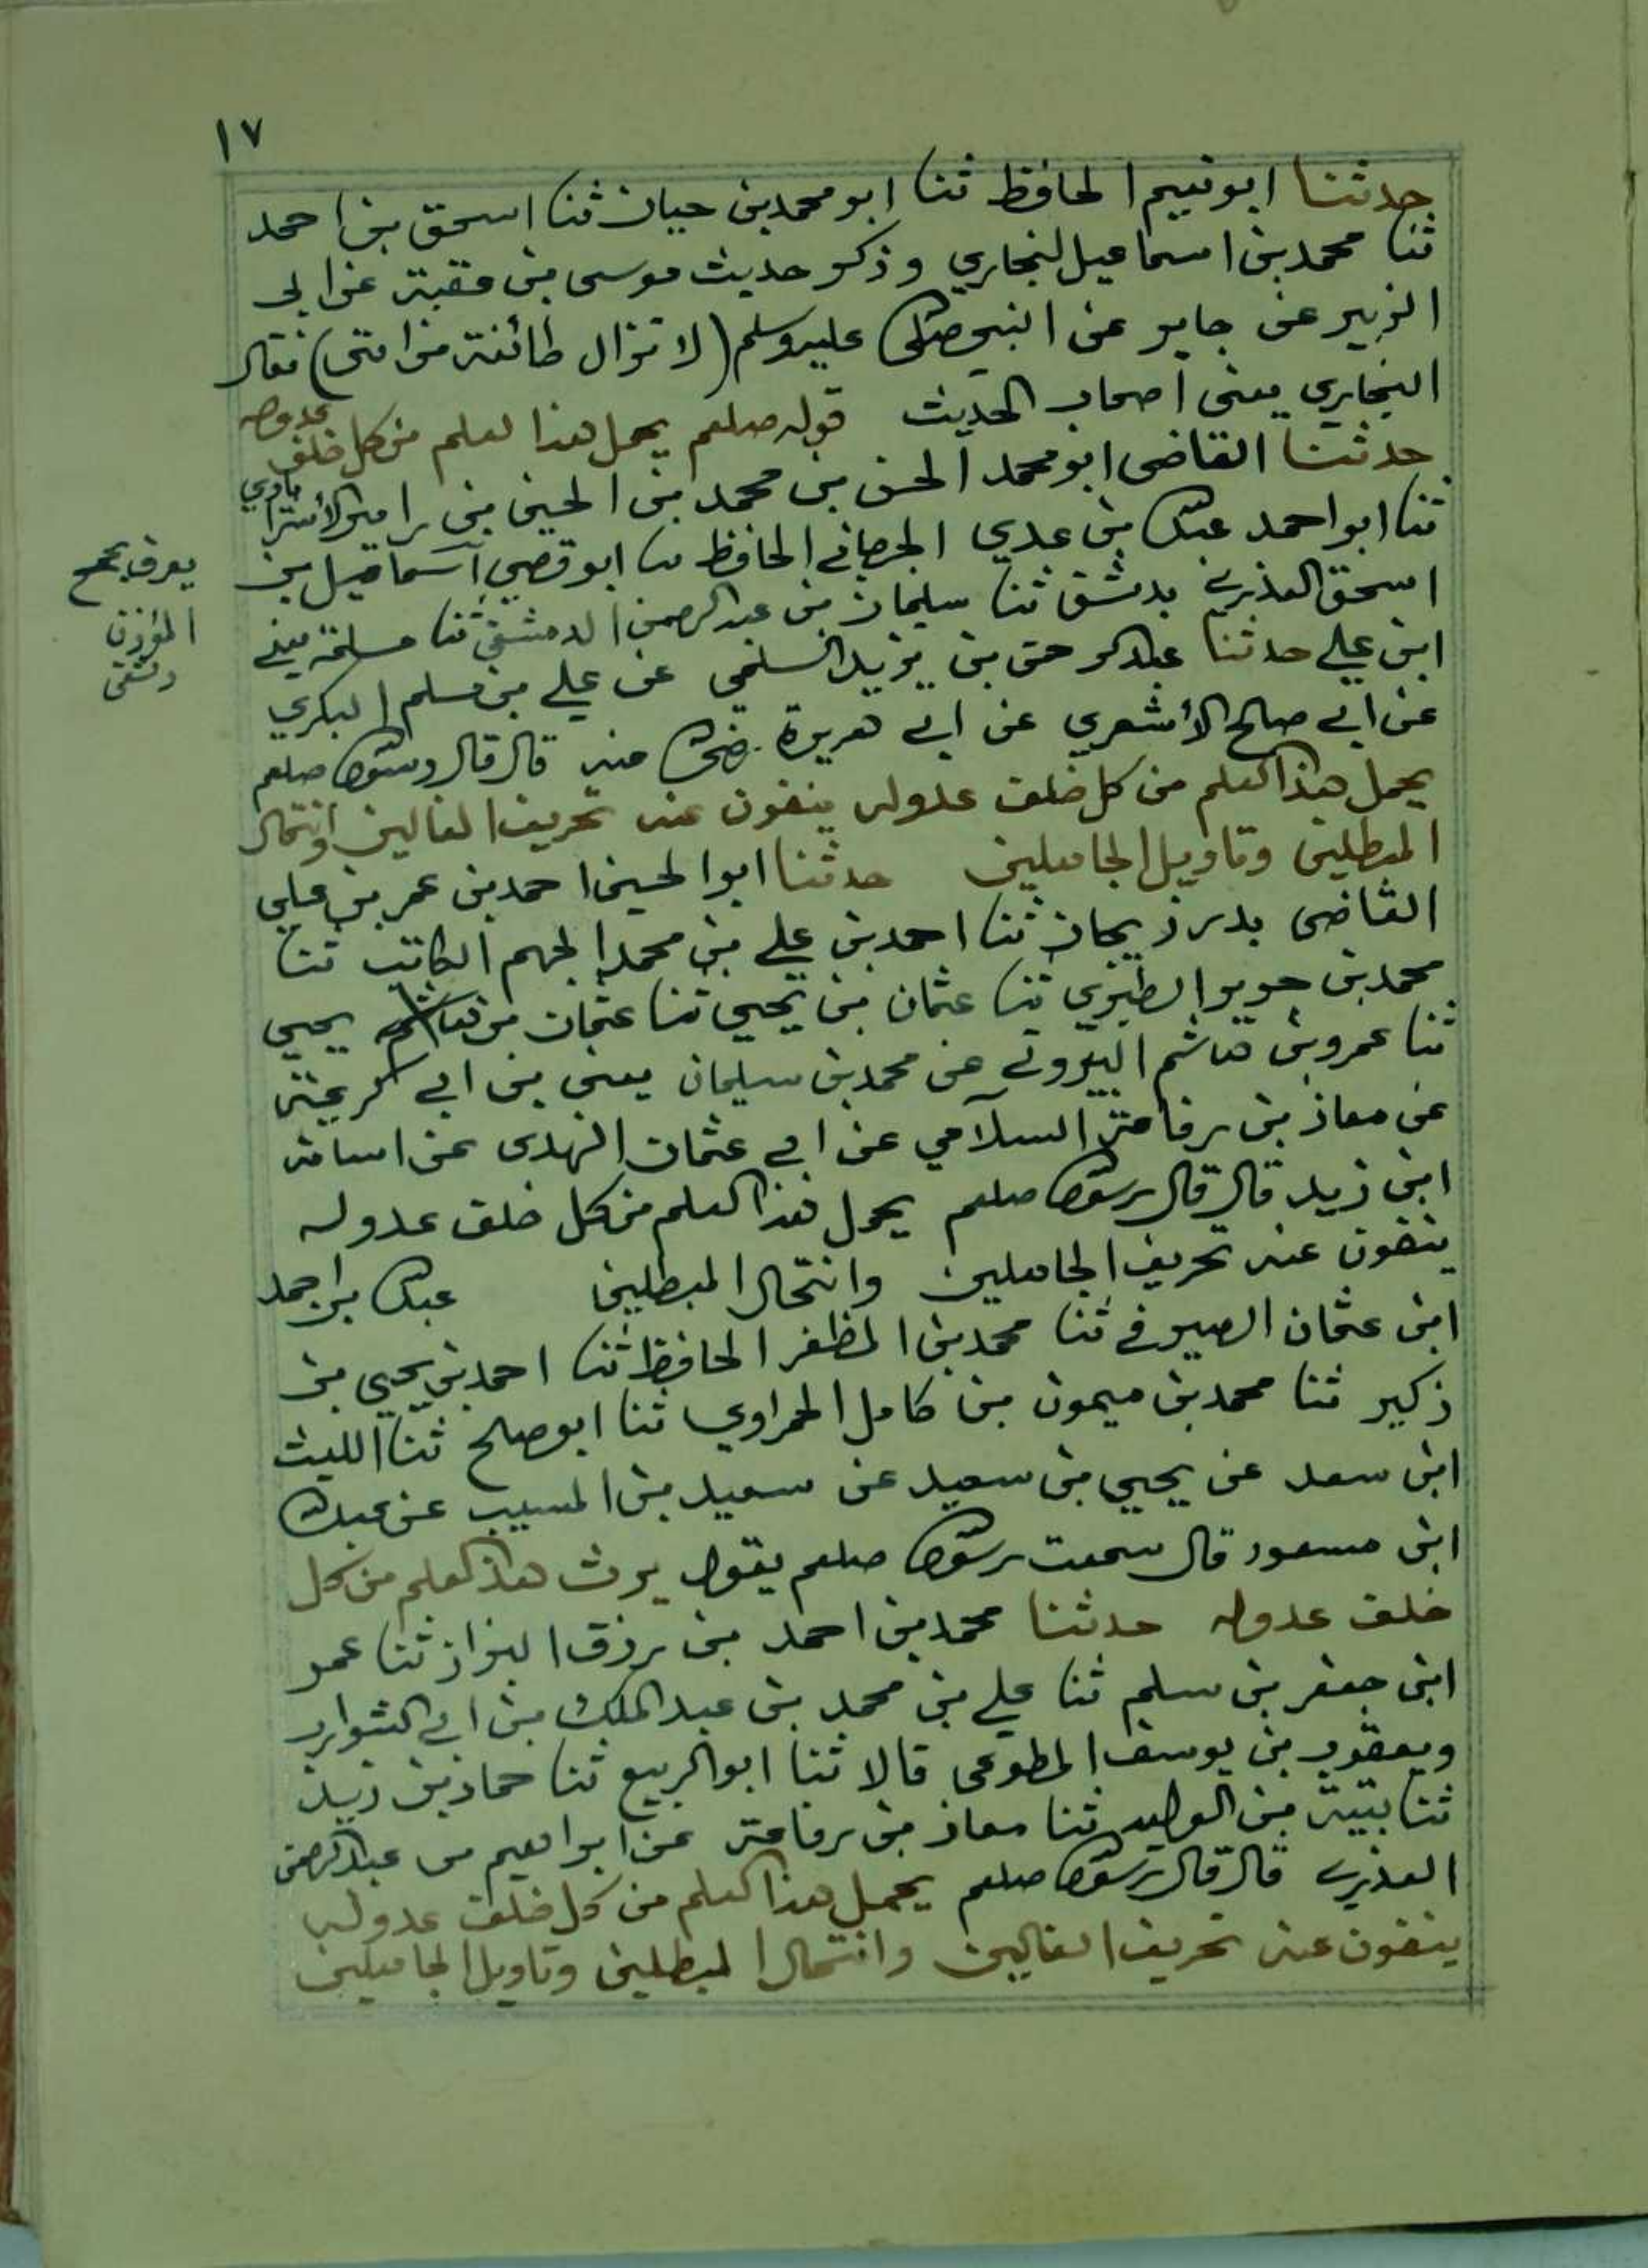 ١٧
حدثنا ابو نعيم الحافظ ثنا ابو محمد بن حيان ثنا اسحق بن احمد
ثنا محمد بن اسماعيل البخاري وذكر حديث موسى بن عقبة عن ابي
الزبير عن جابر عن النبي صلى الله عليه وسلم (لا تزال طائفة من امتى) فقال
البخاري يعنى اصحاب الحديث قوله صلعم يحمل هذا العلم من كل خلف عدوله
حدثنا القاضى ابو محمد الحسن بن محمد بن الحسين بن رامين الأستراباذي
ثنا ابو احمد عبد الله بن عدي الجرجاني الحافظ ثنا ابو قصي اسماعيل بن
اسحق العذري بدمشق ثنا سليمان بن عبد الرحمن الدمشقي ثنا مسلمة يعني
ابن علي حدثنا عبد الرحمن بن يزيد السلمي عن علي بن مسلم البكري
عن ابي صالح الأشعري عن ابي هريرة رضى الله عنه قال قال رسول الله صلعم
يحمل هذا العلم من كل خلف عدوله ينفون عنه تحريف الغالين وانتحال
المبطلين وتاويل الجاهلين حدثنا ابو الحسين احمد بن عمر بن علي
القاضى بدرزيجان ثنا احمد بن علي بن محمد الجهم الكاتب ثنا
محمد بن جرير الطبري ثنا عثمان بن يحيى ثنا عثمان بن هاشم يحيى
ثنا عمرو بن هاشم البيروتي عن محمد بن سليمان يعنى بن ابي كريمة
عن معاذ بن رفاعة السلامي عن ابي عثمان النهدى عن اسامة
ابن زيد قال قال رسول الله صلعم يحمل هذا العلم من كل خلف عدوله
ينفون عنه تحريف الجاهلين وانتحال المبطلين عبد الله بن احمد
ابن عثمان الصيرفي ثنا محمد بن المظفر الحافظ ثنا احمد بن يحيى بن
زكير ثنا محمد بن ميمون بن كامل الحمراوي ثنا ابو صلح ثنا الليث
ابن سعد عن يحيى بن سعيد عن سعيد بن المسيب عن عبد الله
ابن مسعود قال سمعت رسول الله صلعم يقول يرث هذا العلم من كل
خلف عدوله حدثنا محمد بن احمد بن رزق البزاز ثنا عمر
ابن جعفر بن سلم ثنا علي بن محمد بن عبد الملك بن ابي الشوارب
ويعقوب بن يوسف المطوعى قالا ثنا ابو الربيع ثنا حماد بن زيد
ثنا بقية بن الوليد ثنا معاذ بن رفاعة عن ابراهيم بن عبد الرحمن
العذري قال قال رسول الله صلعم يحمل هذا العلم من كل خلف عدوله
ينفون عنه تحريف الغالين وانتحال المبطلين وتاويل الجاهلين
يعرف
المؤذن